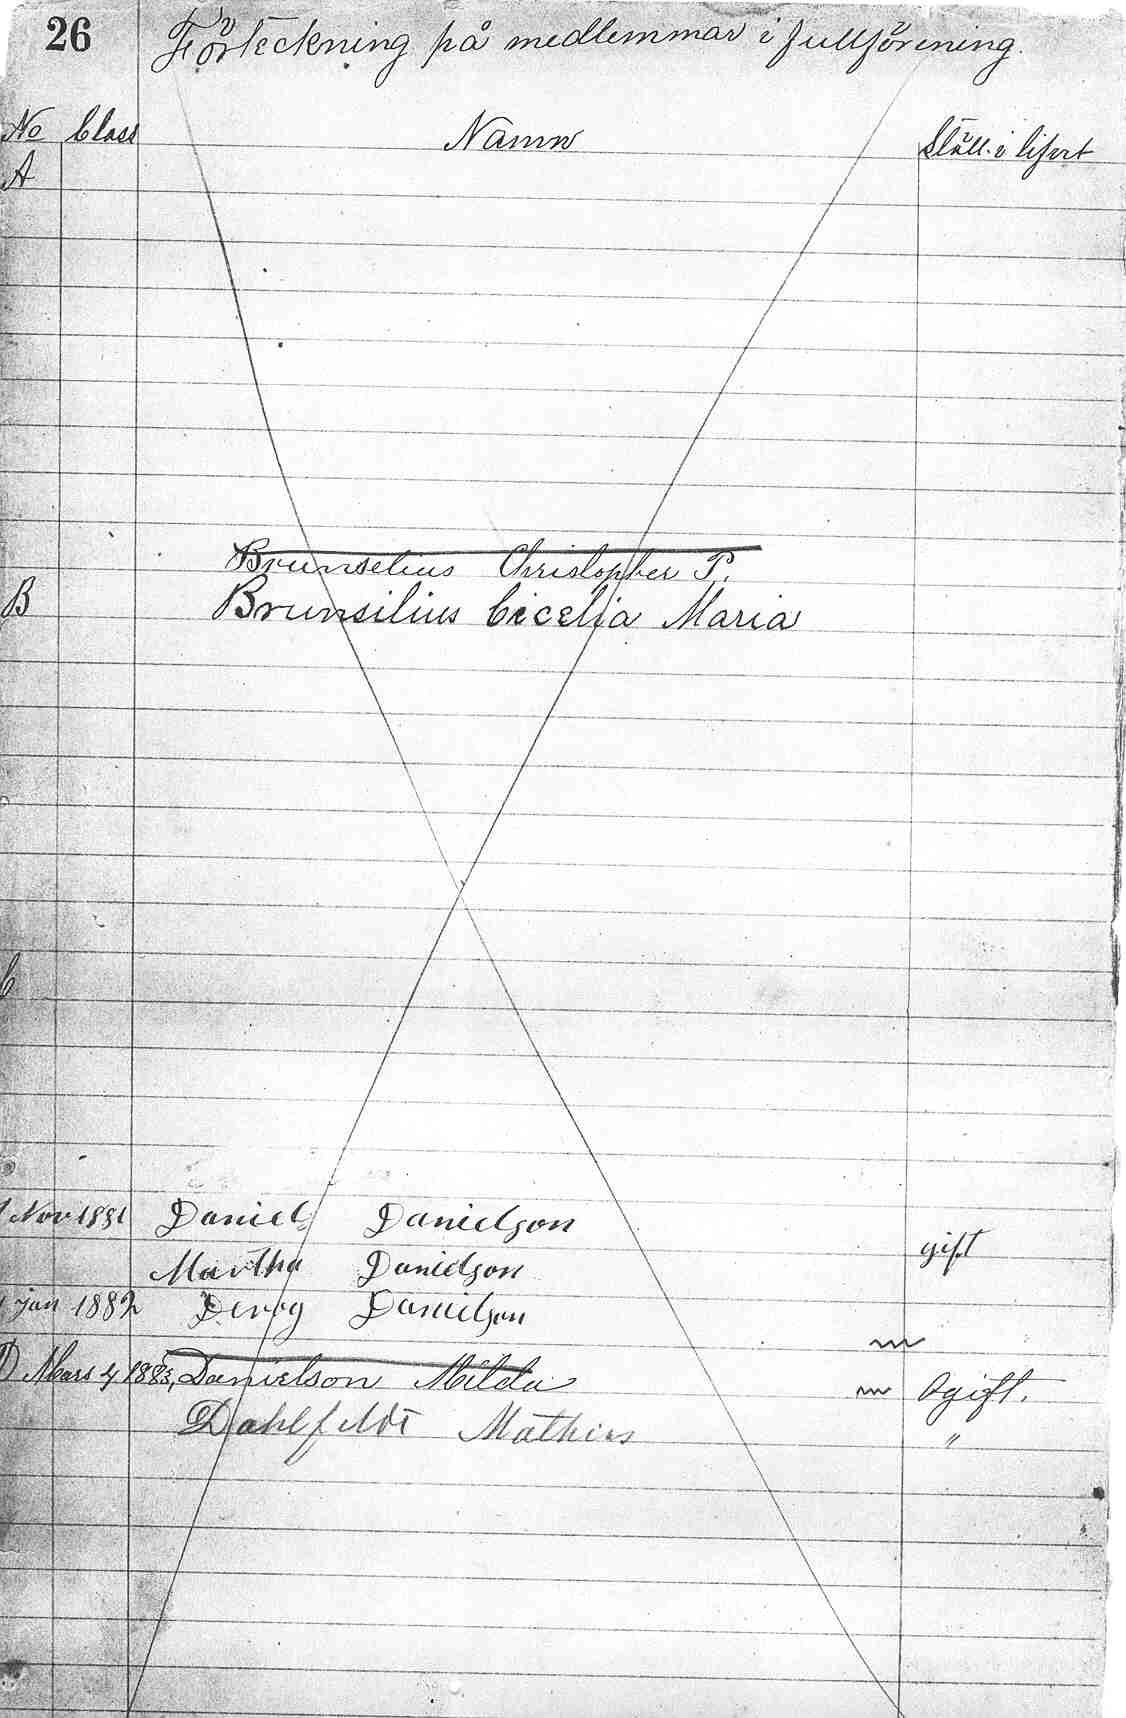 26 Förteckning på medlemmar i full förening.
No Class Namn Ställ. i lifvet
A
Brunselius Christopher P.
B Brunsilius Cicelia Maria
C
Nov 1881 Daniel Danielson
Martha Danielson gift
jan 1882 Danielson
D Mars 4 1883, Danielson Hilda Ogift.
Dahlfeldt Mathies "